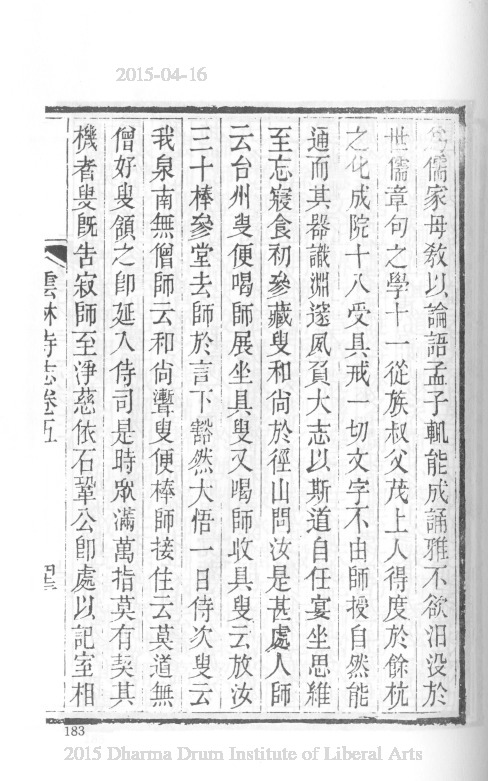 2015-04-16
儒家母教以論語孟子輒能成誦雅不欲汨没於
世儒章句之學十一從族叔父茂上人得度於餘杭
之化成院十八受具戒一切文字不由師授自然能
通而其器識淵邃夙負大志以斯道自任宴坐思維
至忘寢食初參藏叟和尚於徑山問汝是甚處人師
云台州叟便喝師展坐具叟又喝師收具叟云放汝
三十棒參堂去師於言下豁然大悟一日侍次叟云
我泉南無僧師云和尚聻叟便棒師接住云莫道無
僧好叟頷之卽延入侍司是時眾滿萬指莫有契其
機者叟旣告寂師至淨慈依石鞏公卽處以記室相
雲林寺志卷五
183
2015 Dharma Drum Institute of Liberal Arts